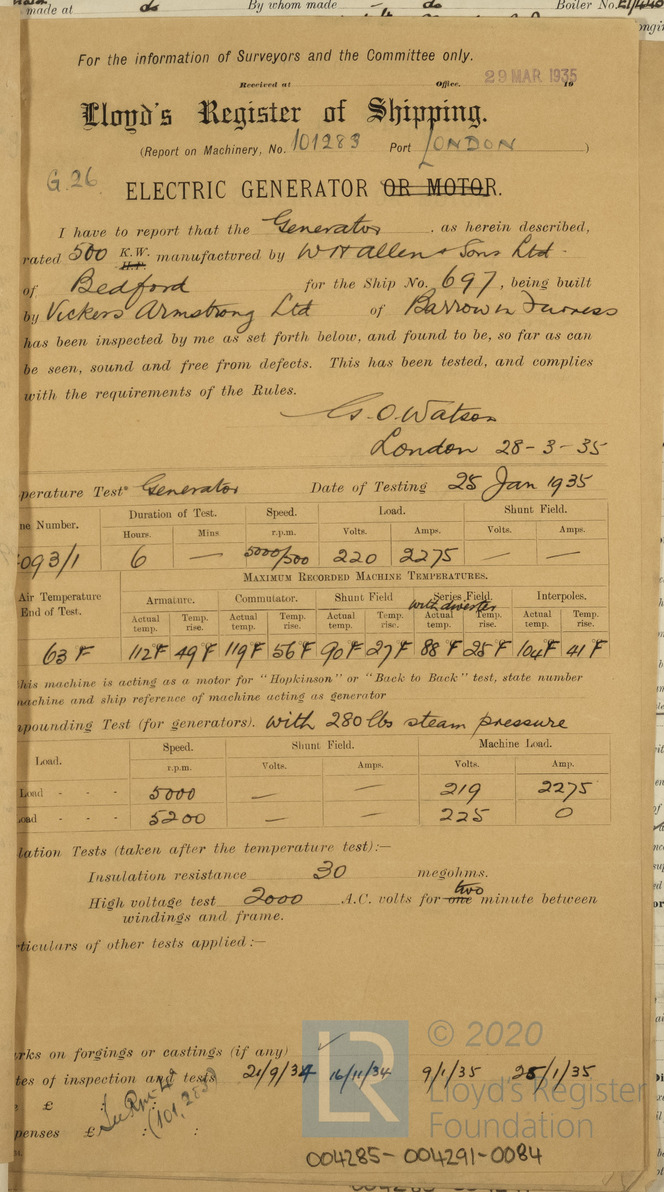 made at do By whom made - do Boiler No.
For the information of Surveyors and the Committee only.
Received at Office. 29 MAR 1935 19
Lloyd's Register of Shipping.
(Report on Machinery, No. 101283 Port LONDON )
G.26 ELECTRIC GENERATOR OR MOTOR.
I have to report that the Generator as herein described,
rated 500 K.W. H.P. manufactured by W H Allen & Sons Ltd
of Bedford for the Ship No. 697, being built
by Vickers Armstrong Ltd of Barrow in Furness
has been inspected by me as set forth below, and found to be, so far as can
be seen, sound and free from defects. This has been tested, and complies
with the requirements of the Rules.
G. O. Watson
London 28-3-35
perature Test* Generator Date of Testing 25 Jan 1935
ne Number. Duration of Test. Speed. Load. Shunt Field.
Hours. Mins r.p.m. Volts. Amps. Volts. Amps.
093/1 6 — 5000/500 220 2275 — —
Air Temperature End of Test. MAXIMUM RECORDED MACHINE TEMPERATURES.
Armature. Commutator. Shunt Field Series Field. with diverter Interpoles.
Actual temp. Temp. rise. Actual temp. Temp. rise. Actual temp. Temp. rise. Actual temp. Temp. rise. Actual temp. Temp. rise.
63°F 112°F 49°F 119°F 56°F 90°F 27°F 88°F 25°F 104°F 41°F
his machine is acting as a motor for "Hopkinson" or "Back to Back" test, state number
machine and ship reference of machine acting as generator
pounding Test (for generators). with 280 lbs steam pressure
Load. Speed. Shunt Field. Machine Load.
r.p.m. Volts. Amps. Volts. Amp.
Load - - - 5000 — — 219 2275
oad - - - 5200 — — 225 0
lation Tests (taken after the temperature test):—
Insulation resistance 30 megohms.
High voltage test 2000 A.C. volts for one two minute between
windings and frame.
ticulars of other tests applied :—
rks on forgings or castings (if any)
tes of inspection and tests 21/9/34 16/11/34 9/1/35 25/1/35
£ : :
penses £ : :
LR © 2020
Lloyd's Register
Foundation
004285-004291-0084